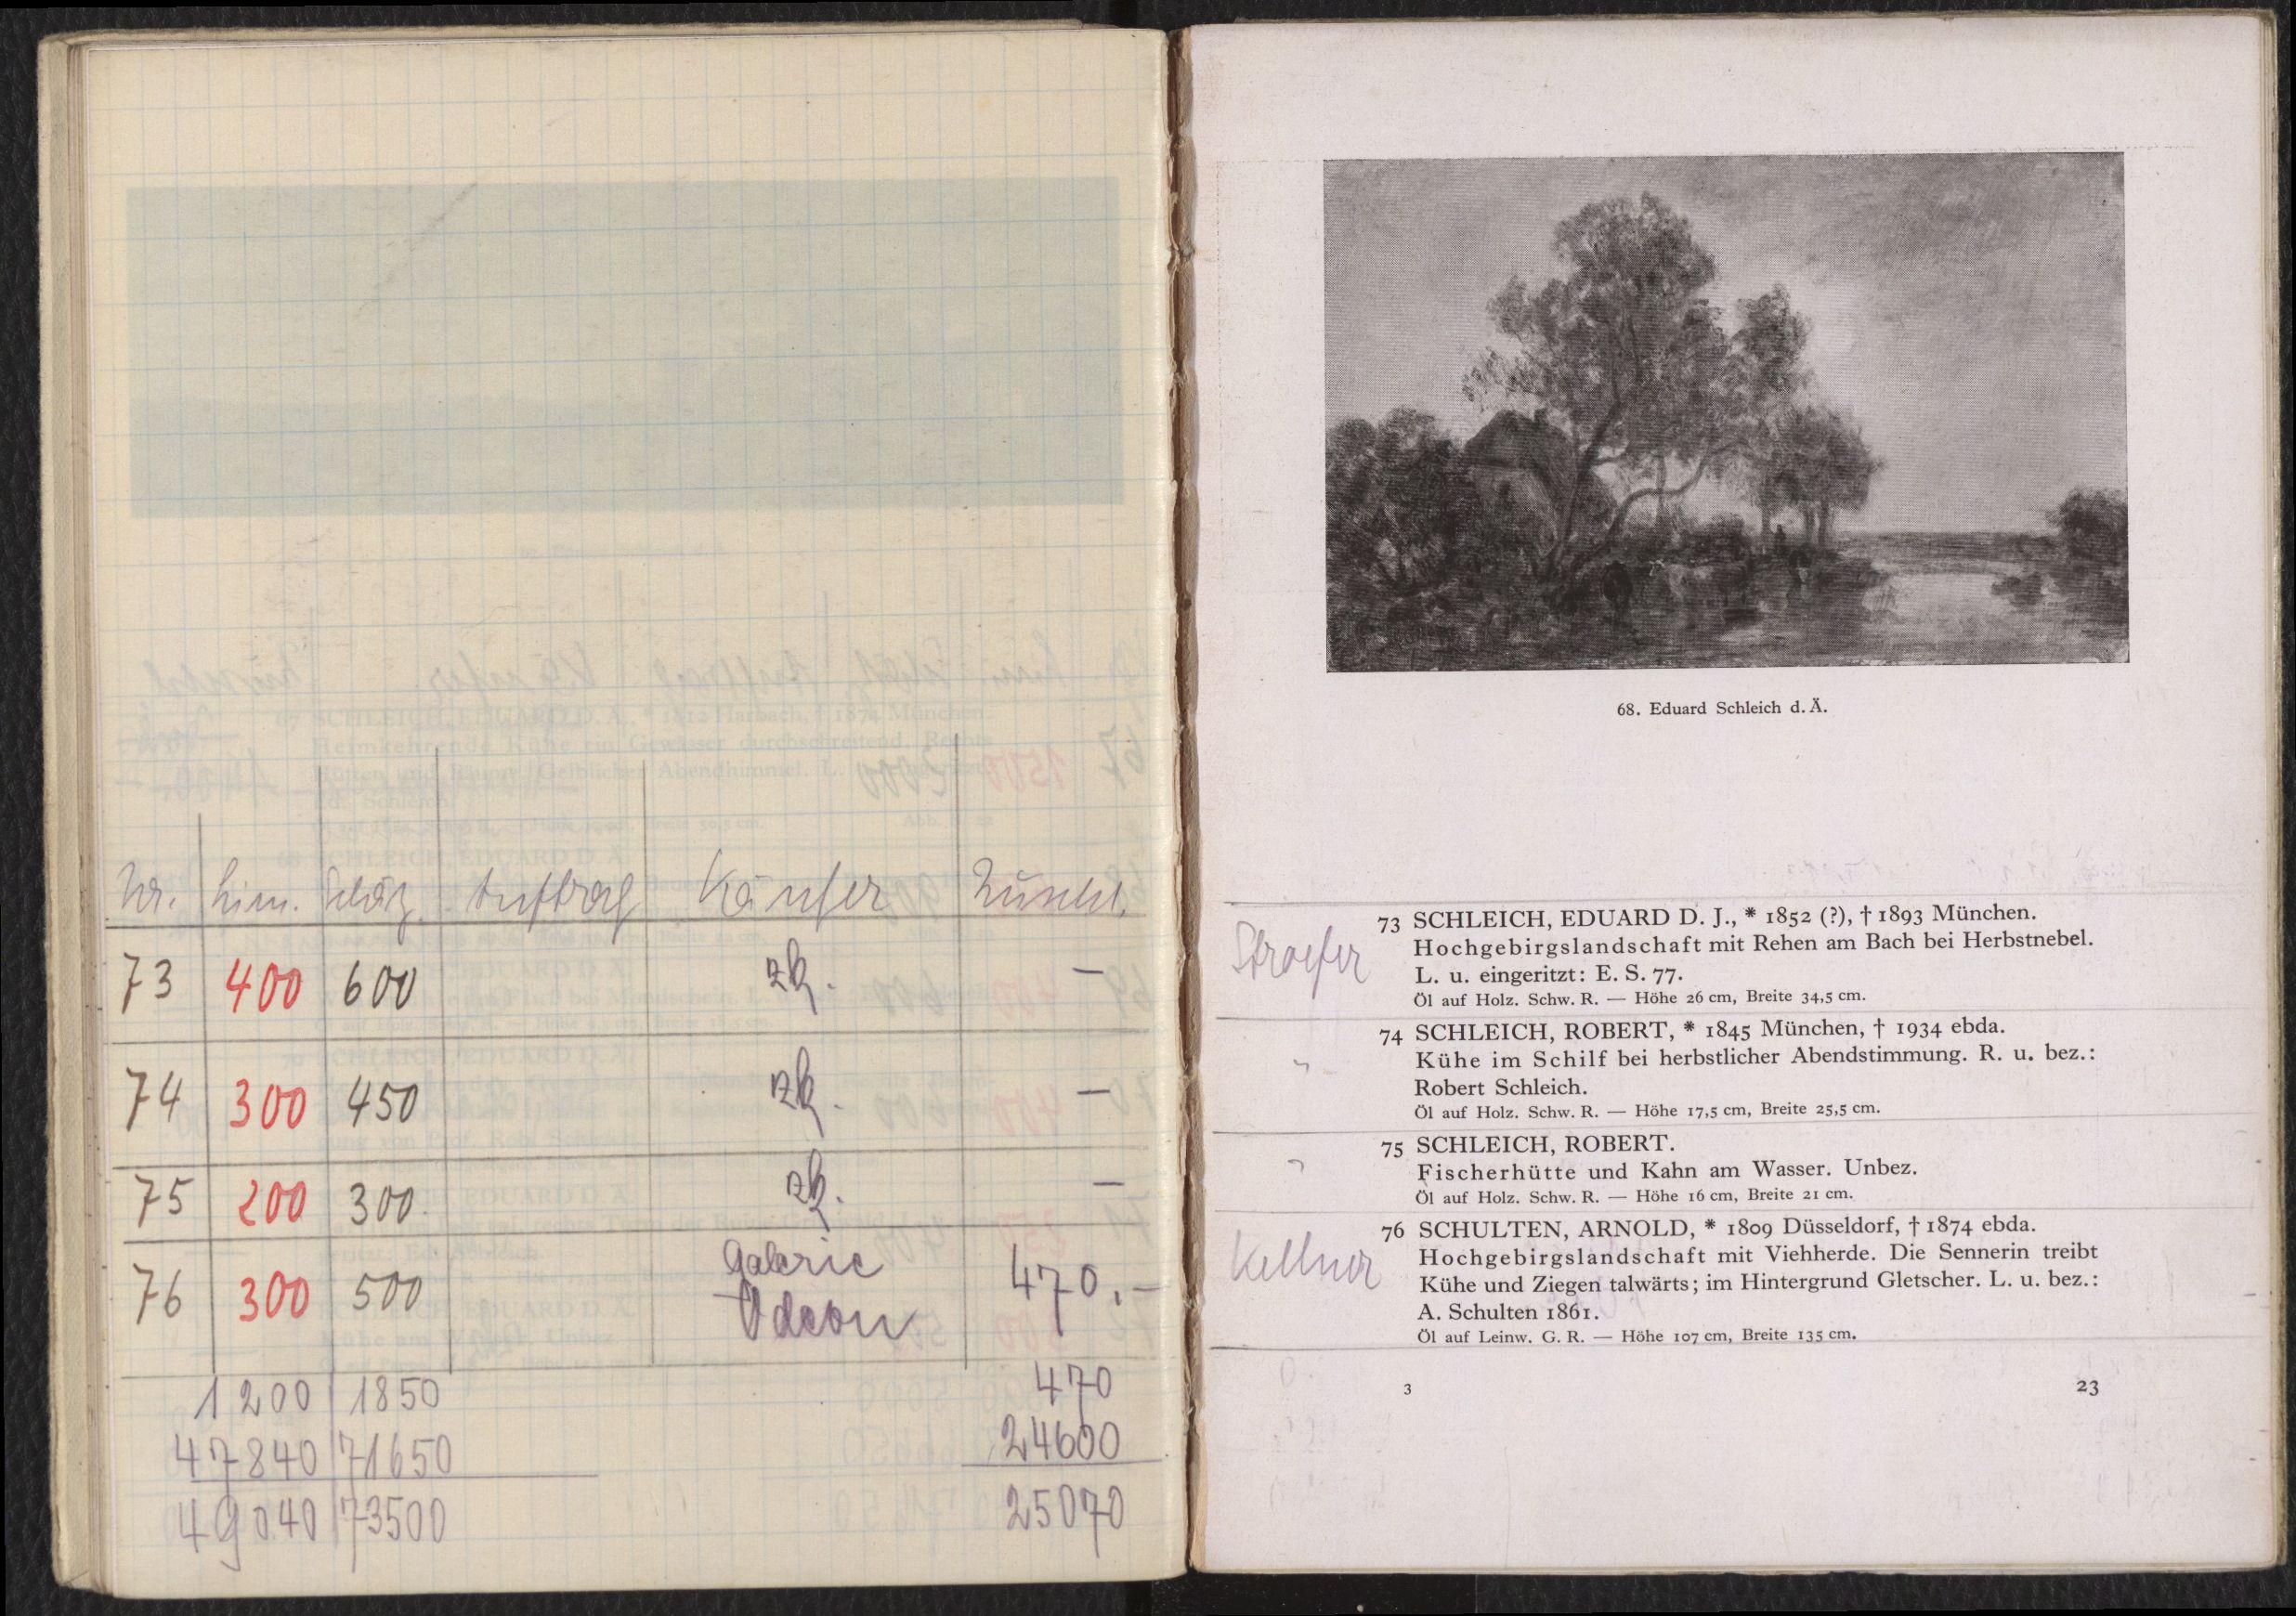 Nr. Lim. Schätz. Auftrag Käufer Zuschl.
73 400 600 zk. —
74 300 450 zk. —
75 200 300 zk. —
76 300 500 Galerie Odeon 470.—
1200 1850 470
47840 71650 24600
49040 73500 25070
68. Eduard Schleich d. Ä.
Stroefer
73 SCHLEICH, EDUARD D. J., * 1852 (?), † 1893 München.
Hochgebirgslandschaft mit Rehen am Bach bei Herbstnebel.
L. u. eingeritzt: E. S. 77.
Öl auf Holz. Schw. R. — Höhe 26 cm, Breite 34,5 cm.
"
74 SCHLEICH, ROBERT, * 1845 München, † 1934 ebda.
Kühe im Schilf bei herbstlicher Abendstimmung. R. u. bez.:
Robert Schleich.
Öl auf Holz. Schw. R. — Höhe 17,5 cm, Breite 25,5 cm.
"
75 SCHLEICH, ROBERT.
Fischerhütte und Kahn am Wasser. Unbez.
Öl auf Holz. Schw. R. — Höhe 16 cm, Breite 21 cm.
Kellner
76 SCHULTEN, ARNOLD, * 1809 Düsseldorf, † 1874 ebda.
Hochgebirgslandschaft mit Viehherde. Die Sennerin treibt
Kühe und Ziegen talwärts; im Hintergrund Gletscher. L. u. bez.:
A. Schulten 1861.
Öl auf Leinw. G. R. — Höhe 107 cm, Breite 135 cm.
3 23